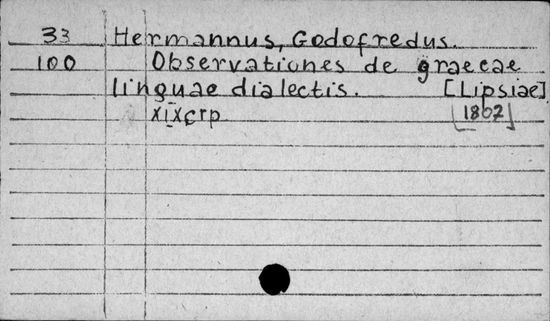 33 Hermannus, Godofredus.
100 Observationes de graecae
linguae dialectis. [Lipsiae]
xixcrp [1807]